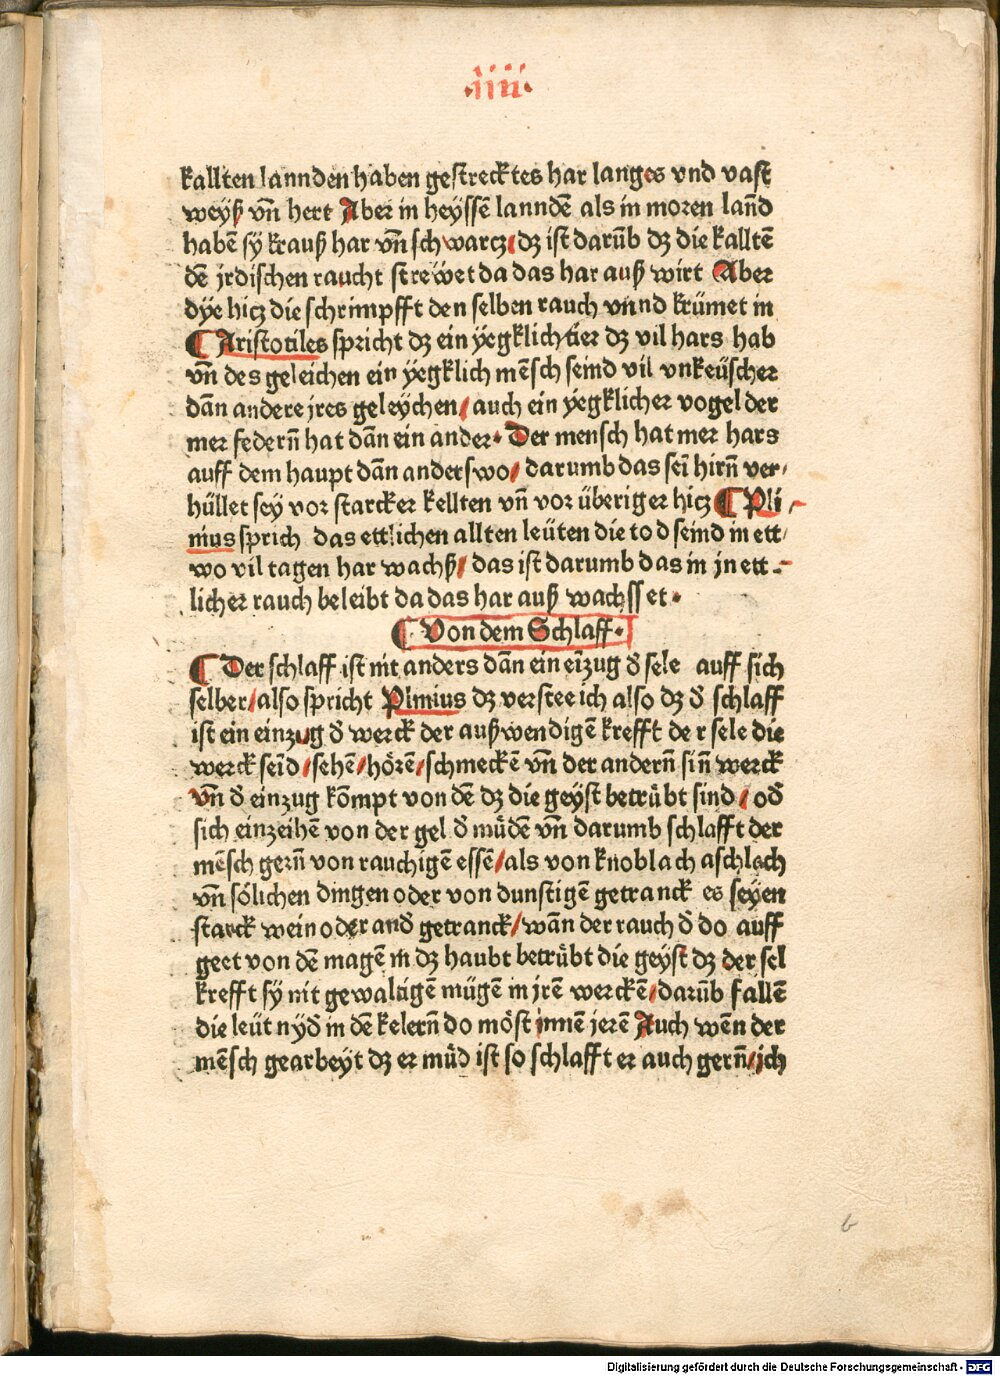 ·iiii·
kallten lannden haben gestrecktes har langes vnd vast
weyß vn̄ hert Aber in heyssē lanndē als in moren lan̄d
habē sy krauß har vn̄ schwarcz/dz ist darūb dz die kalltē
dē jrdischen raucht strewet da das har auß wirt Aber
dÿe hicz die schrimpfft den selben rauch vnnd krümet in
¶ Aristotiles spricht dz ein ÿegklich tier dz vil hars hab
vn̄ des geleichen ein ÿegklich mēsch seind vil vnkeüscher
dan̄ andere jres geleÿchen/auch ein ÿegklicher vogel der
mer federn̄ hat dan̄ ein ander· Der mensch hat mer hars
auff dem haupt dan̄ anderswo/ darumb das sei hirn̄ ver/
hüllet sey vor starcker kellten vn̄ vor überiger hicz ¶ Pli/
nius sprich das ettlichen allten leüten die tod seind in ett/
wo vil tagen har wachß/ das ist darumb das in jn ett-
licher rauch beleibt da das har auß wachsset·
¶ Von dem Schlaff·
¶ Der schlaff ist nit anders dan̄ ein einzug đ sele auff sich
selber/also spricht Plinius dz verstee ich also dz đ schlaff
ist ein einzug đ werck der außwendigē krefft der sele die
werck seīd/sehē/hörē/schmeckē vn̄ der andern̄ sin̄ werck
vn̄ đ einzug kōmpt von dē dz die geÿst betrübt sind/ ođ
sich einzeihē von der gel đ müdē vn̄ darumb schlafft der
mēsch gern̄ von rauchigē essē/als von knoblach aschlach
vn̄ sölichen dingen oder von dunstigē getranck es seÿen
starck wein oder anđ getranck/wan̄ der rauch đ do auff
geet von dē magē in dz haubt betrübt die geÿst dz der sel
krefft sÿ nit gewaltigē mügē in jrē werckē/darūb fallē
die leüt nÿđ in dē kelern̄ do möst jnnen jerē Auch wēn der
mēsch gearbeyt dz er müd ist so schlafft er auch gern̄/ich
6
Digitalisierung gefördert durch die Deutsche Forschungsgemeinschaft - DFG